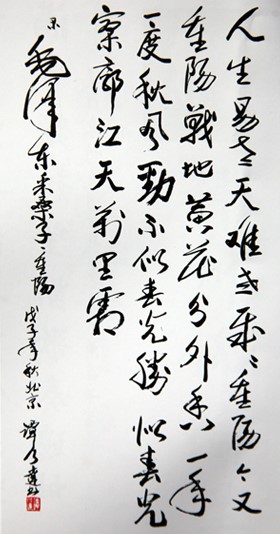 人生易老天难老歲々重阳今又
重阳戰地黄花分外香一年
一度秋风勁不似春光勝似春光
寥廓江天萬里霜
录毛泽东采桑子重阳戊子年秋北京